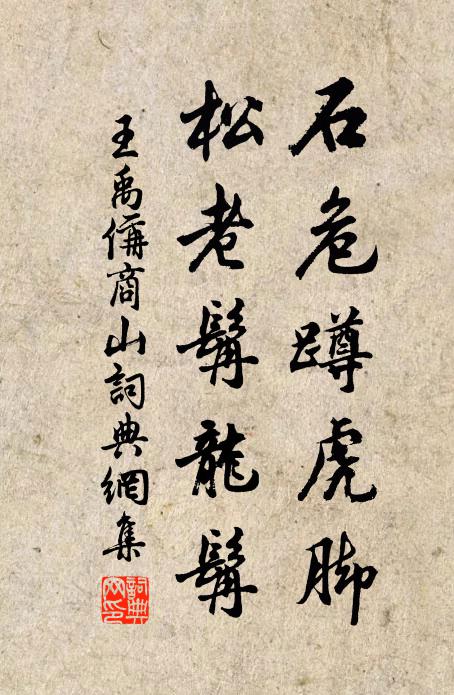 石危蹲虎脚
松老髯龍髯
王禹偁商山詞典網集
詞典网印